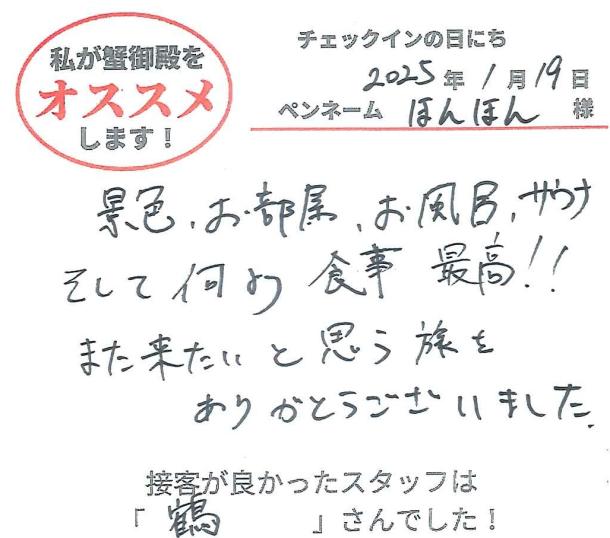 私が蟹御殿を
オススメ
します！
チェックインの日にち
2025年1月19日
ペンネーム ほんほん 様
景色、お部屋、お風呂、サウナ
そして何より食事 最高!!
また来たいと思う旅を
ありがとうございました
接客が良かったスタッフは
「鶴」さんでした！